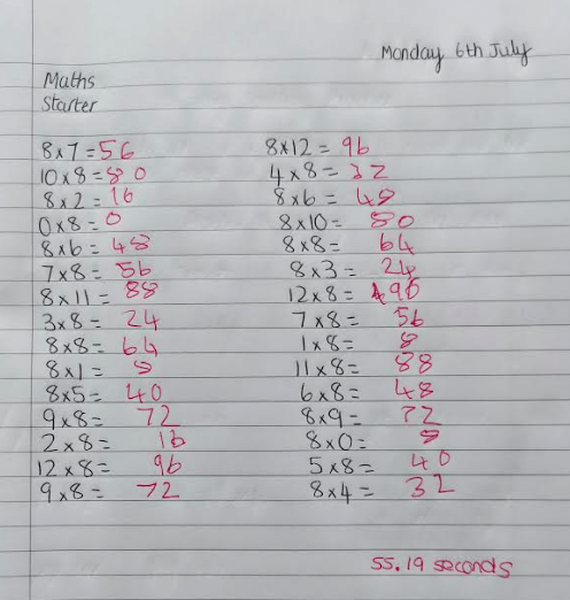 Monday 6th July
Maths
Starter
8x7=56
10x8=80
8x2=16
0x8=0
8x6=48
7x8=56
8x11=88
3x8=24
8x8=64
8x1=8
8x5=40
9x8=72
2x8=16
12x8=96
9x8=72
8x12=96
4x8=32
8x6=48
8x10=80
8x8=64
8x3=24
12x8=96
7x8=56
1x8=8
11x8=88
6x8=48
8x9=72
8x0=8
5x8=40
8x4=32
55.19 seconds